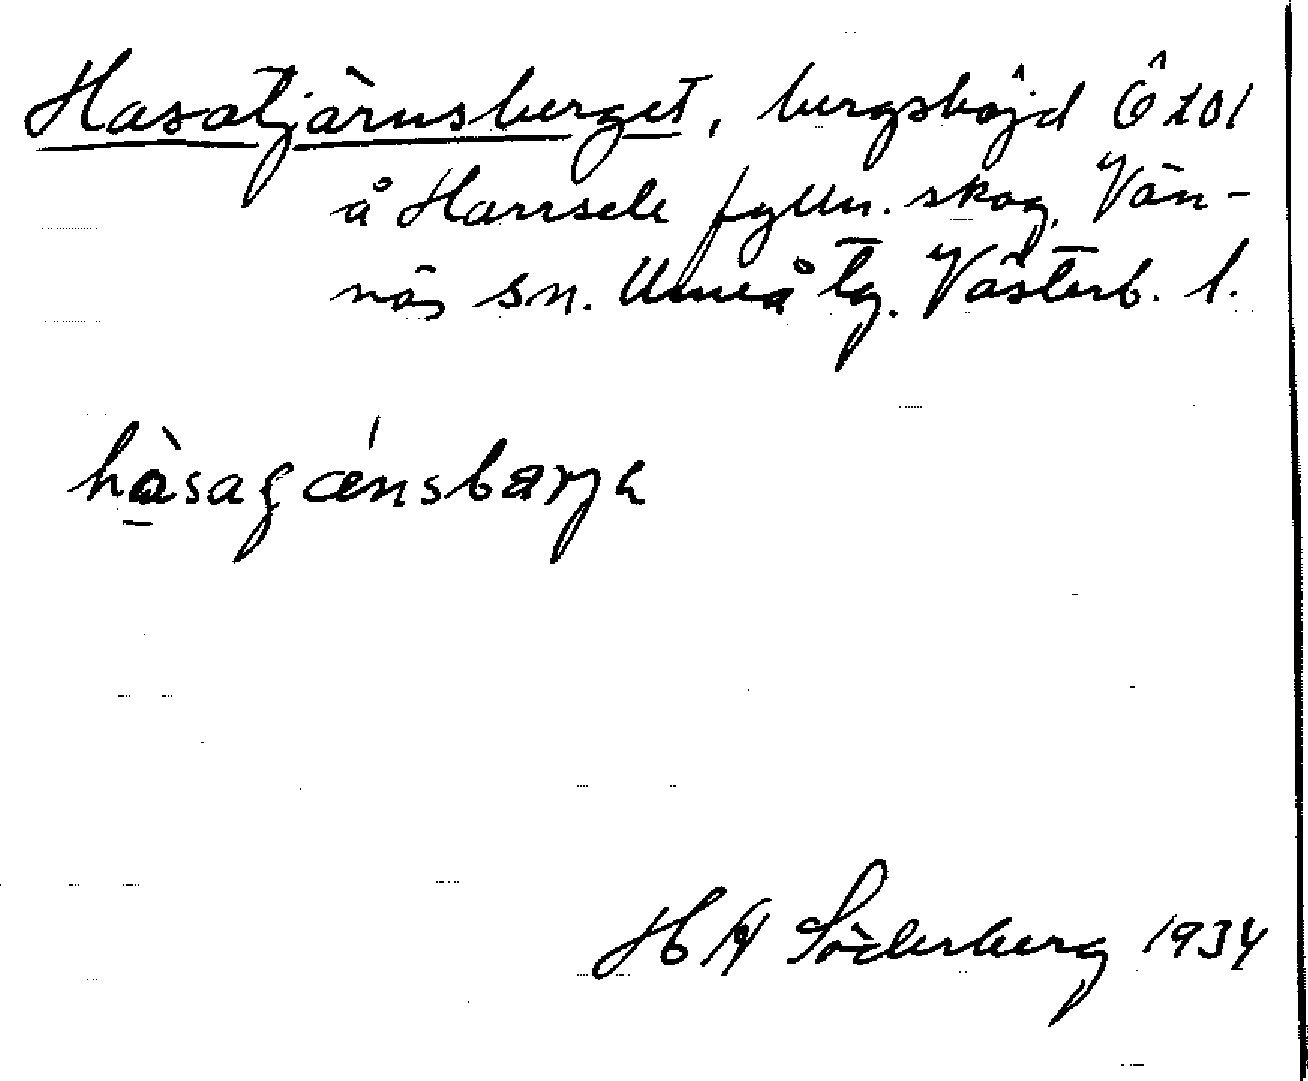 Hasatjärnsberget, bergshöjd Ö 101
å Harrsele fylln. skog, Vän-
näs sn. Umeå tg. Västerb. l.
hàsaʃænsbarjə
H Söderberg 1934